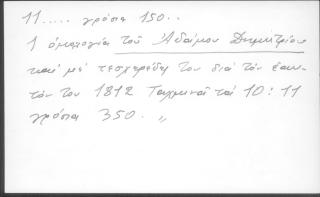 11..... γρόσια 150..
1 ὁμολογία τοῦ Ἀδάμου Δημητρίου
καί μέ τεσχερέδες του διά τόν ἑαυ-
τόν του 1812 Ταχμινοί τοί 10:11
γρόσια 350. "